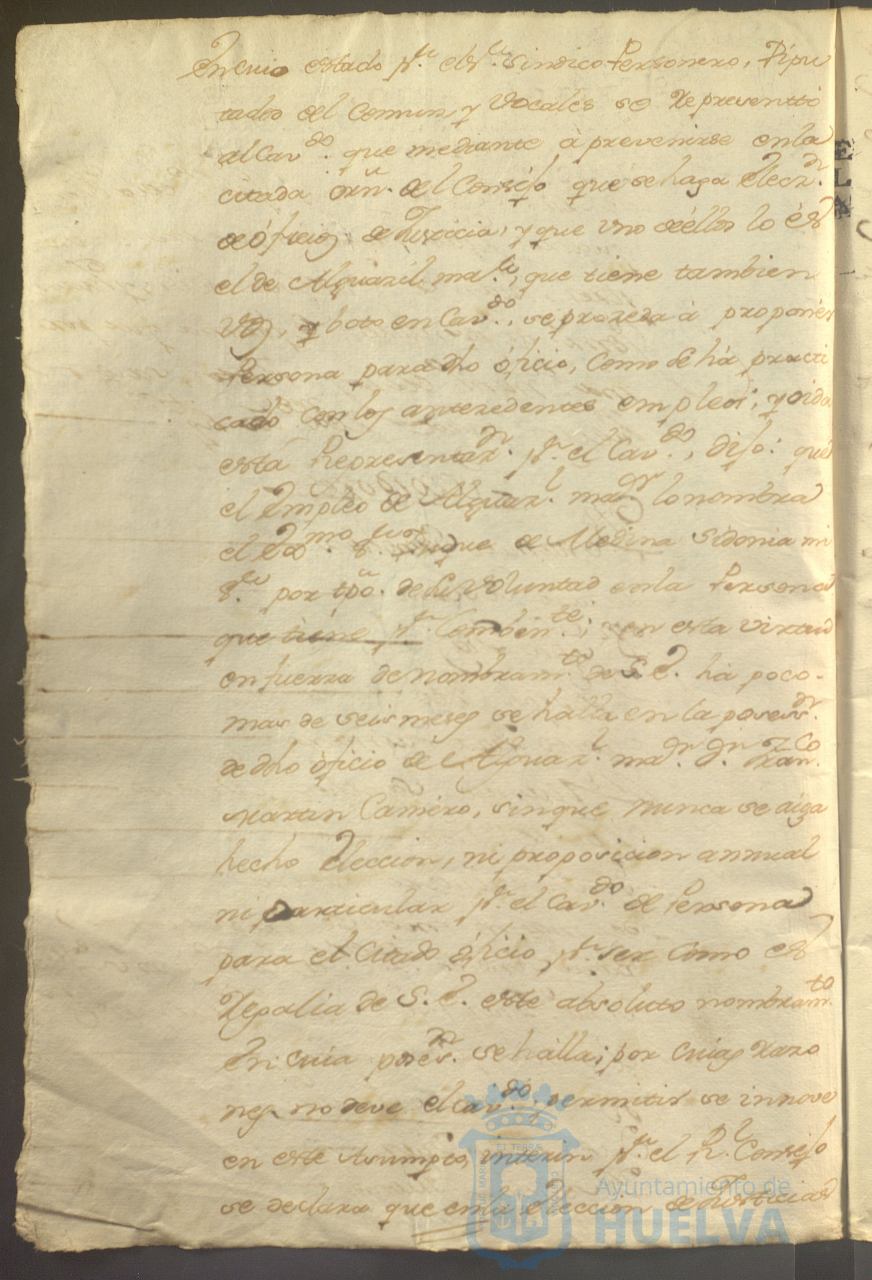 En cuio estado pr. el Sr. Sindico Personero, Dipu
tados del Comun y Vocales se Representtó
al Cavdo. que mediante à prevenirse en la
citada orn. del Consejo que se haga Eleczn.
de ôficios de Justicia, y que uno de ellos lo és
el de Alguazil mar., que tiene tambien
voz, y boto en Cavdo., se proceda à proponer
Persona para dho ôficio, Como se hà practi
cado con los antezedentes empleos; y oida
esta Representazn. pr. el Cavdo., dijo: que
el Empleo de Alguazl. mar. lo nombra
el Exmo. Sor. Duque de Medina Sidonia mi
Sr. por tpo. de su voluntad en la Persona
que tiene pr. Combente.; y en esta virtud
en fuerza de nombramto. de S. E. hà poco
mas de seis meses se halla en la posesn.
de dho ôficio de Alguazl. mar. Dn. Franco.
Martin Camero, sin que nunca se aiga
hecho Eleccion, ni proposicion annual
ni particular pr. el Cavdo. de Persona
para el citado ôficio, pr. ser como es
Regalia de S. E. este absoluto nombramto.
En cuia posesn. se halla; por cuias razo
nes no deve el Cavdo. permitir se innove
en este Asumpto, interin pr. el Rl. Consejo
se declara que en la Eleccion de Justicias
Ayuntamiento de
HUELVA